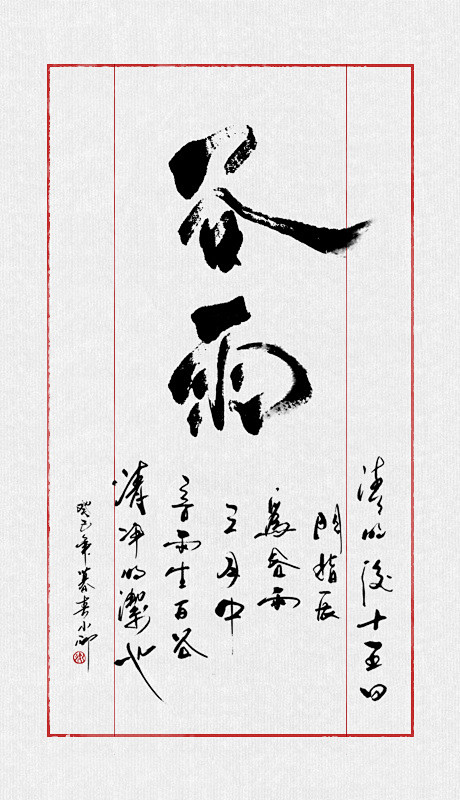 谷雨
清明後十五日
鬥指辰
為谷雨
三月中
言雨生百谷
清净明潔也
癸巳年暮春小卿